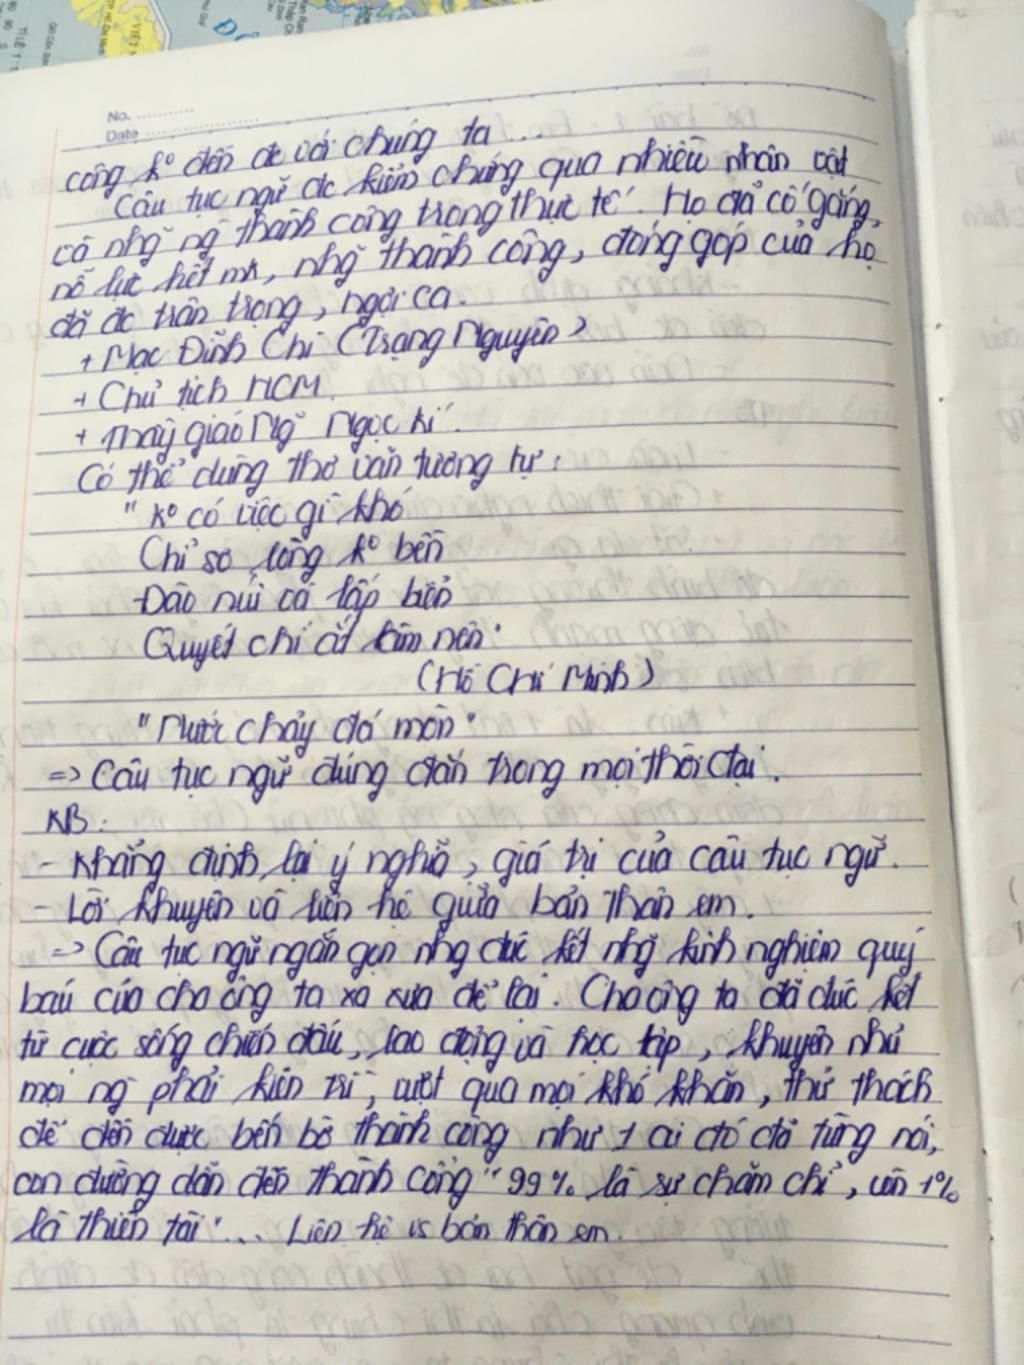 No. ............
Date ........................
công k° đến đc với chúng ta ...
Câu tục ngữ đc kiểm chứng qua nhiều nhân vật
có nhg~ ng` thành công trong thực tế. Họ đã cố gắng,
nỗ lực hết mh, nhg~ thành công, đóng góp của họ
đã đc trân trọng, ngợi ca.
+ Mạc Đĩnh Chi (Trạng Nguyên)
+ Chủ tịch HCM.
+ Thầy giáo Ng~ Ngọc Kí.
Có thể dùng thơ văn tương tự:
" K° có việc gì khó
Chỉ sợ lòng k° bền
Đào núi và lấp biển
Quyết chí ắt làm nên"
(Hồ Chí Minh)
" Nước chảy đá mòn"
=> Câu tục ngữ đúng đắn trong mọi thời đại.
KB:
- Khẳng định lại ý nghĩa, giá trị của câu tục ngữ.
- Lời khuyên và liên hệ giữa bản thân em.
=> Câu tục ngữ ngắn gọn nhg đúc kết nhg~ kinh nghiệm quý
báu của cha ông ta xa xưa để lại. Cha ông ta đã đúc kết
từ cuộc sống chiến đấu, lao động và học tập, khuyên nhủ
mọi ng` phải kiên trì, vượt qua mọi khó khăn, thử thách
để đến được bến bờ thành công như 1 ai đó đã từng nói,
con đường dẫn đến thành công "99% là sự chăm chỉ, còn 1%
là thiên tài"... Liên hệ vs bản thân em.